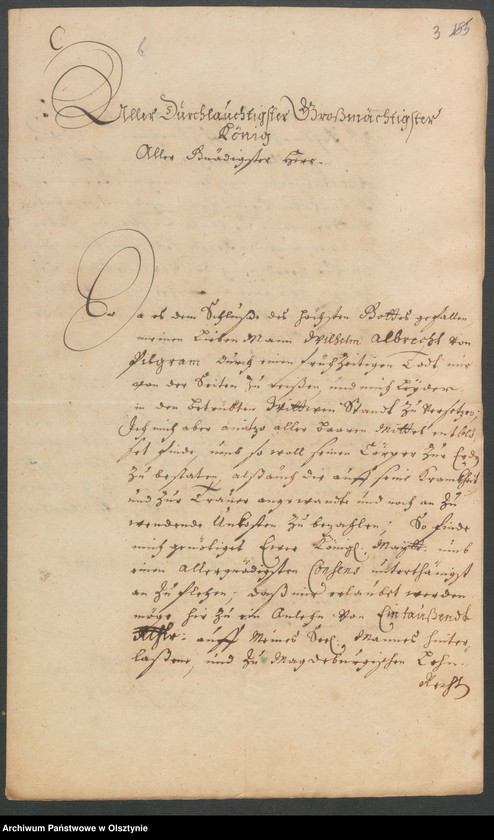 3 185
6
Aller Durchlauchtigster Großmächtigster
König
Aller Gnädigster Herr.
Da es dem Schluße des höchsten Gottes gefallen,
meinen Lieben Mann Wilhelm Albrecht von
Pilgram durch einen frühzeitigen Todt mir
von der Seiten zu reißen, und mich leyder
in den betrübten Wittwen Standt zu versetzen;
Ich mich aber anitzo aller baaren Mittel entblö-
ßet finde, umb so woll seinen Cörper zur Erde
zu bestaten, alß auch die auff seine Kranckheit
und zur Trauer angewandte und noch an zu
wendende Unkosten zu bezahlen; So finde
mich genötiget Ewre Königl. Maytt. umb
einen allergnädigsten Consens unterthänigst
an zu flehen; daß mir erlaubet werden
möge hie zu ein Anlehn von Eintaußendt
Rthlr. auff Meines Seel. Mannes hinter-
laßene, und zu Magdeburgischen Lehn-
Recht
Archiwum Państwowe w Olsztynie